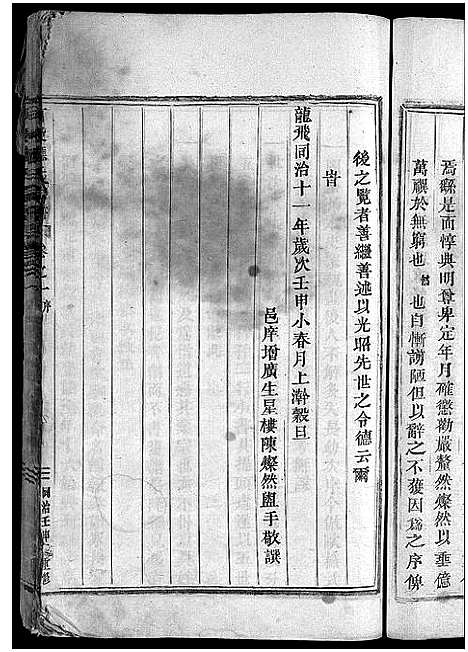 焉繇是而惇典明尊卑定年月確懲勸嚴釐然燦然以垂億
萬禩於無窮也 然 也自慚謭陋但以辭之不獲因為之序俾
後之覽者善繼善述以光昭先世之令德云爾
旹
龍飛同治十一年歲次壬申小春月上澣穀旦
邑庠增廣生星樓陳燦然盥手敬譔
卷之一 序
同治壬申重修